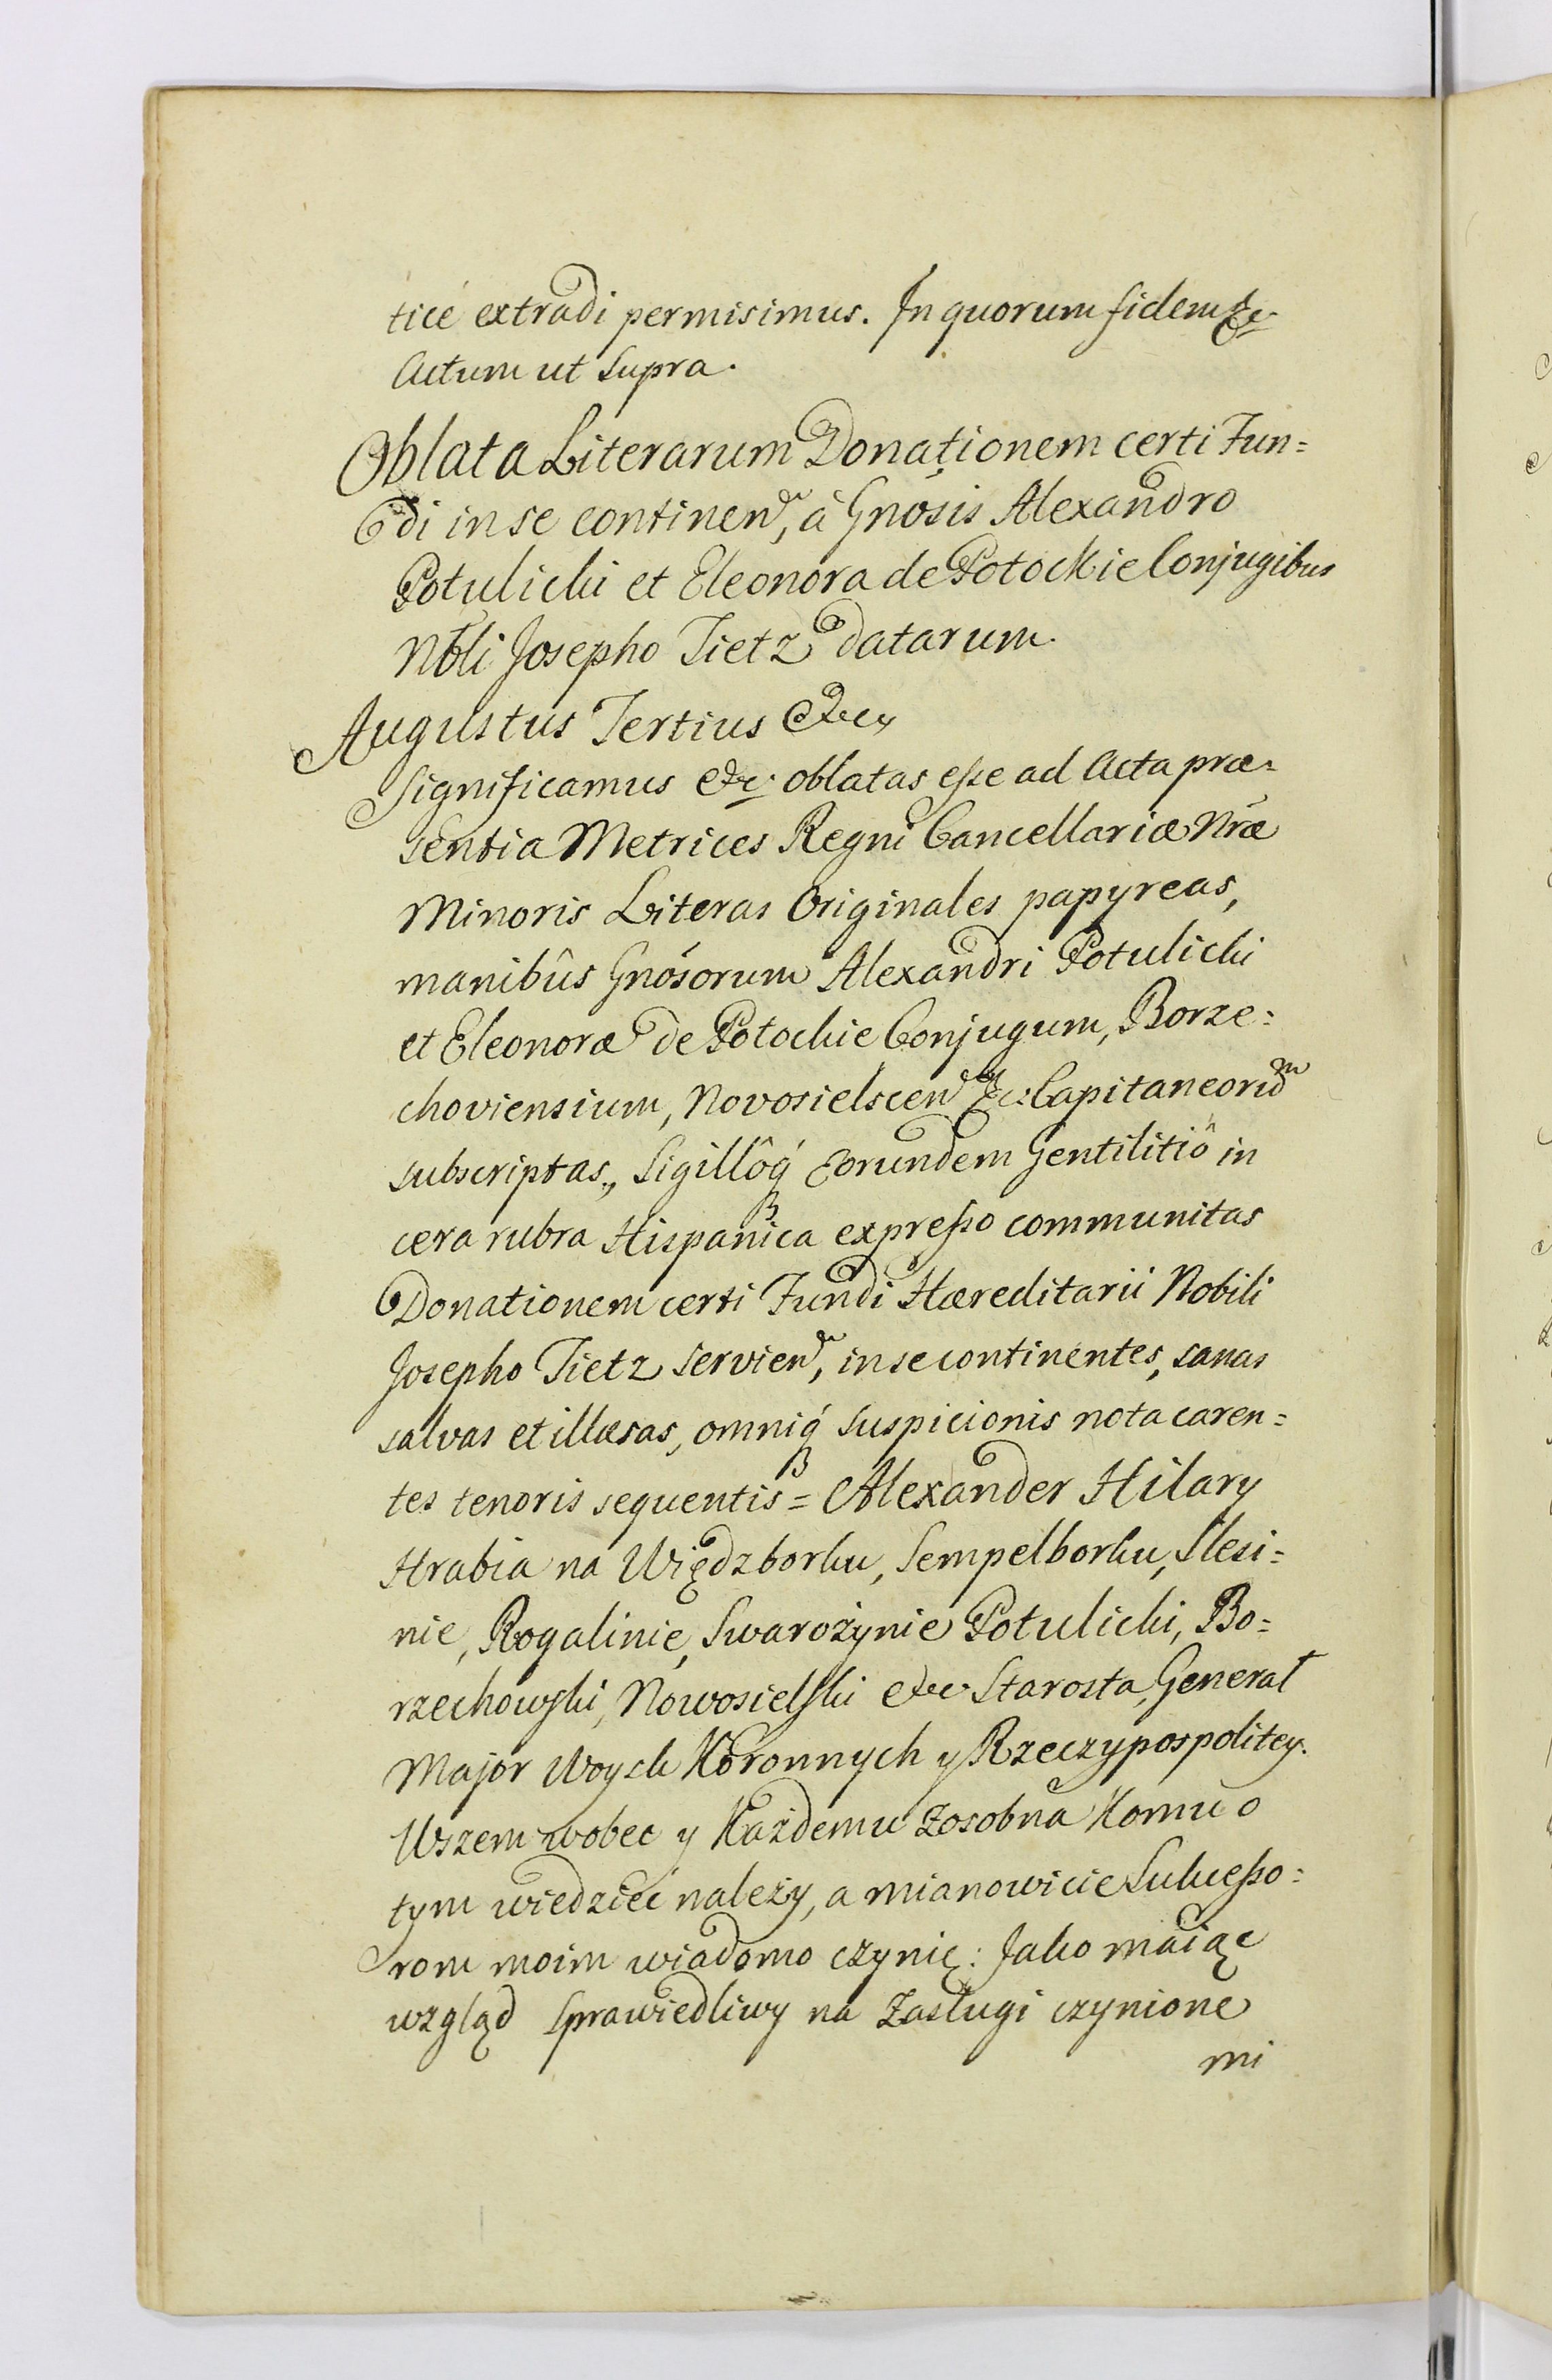 ticé extradi permisimus. In quorum fidem &c.
Actum ut supra.
Oblata Literarum Donationem certi Fun=
di in se continen, à Gnosis Alexandro
Potulicki et Eleonora de Potockie Conjugibus
Nbli Josepho Tietz datarum.
Augustus Tertius &c.
Significamus &c. oblatas eße ad Acta præ=
sentia Metrices Regni Cancellariæ Nræ
Minoris Literas Originales papyreas,
manibûs Gnosorum Alexandri Potulicki
et Eleonoræ de Potockie Conjugum, Borze=
choviensium, Novosielscen &c. Capitaneorum
subscriptas, Sigillôq́ Eorundem Gentilitiô in
cera rubra Hispanica expreßo communitas
Donationem certi Fundi Hæreditarii Nobili
Josepho Tietz servien, in se continentes, sanas
salvas et illæsas, omniq́ suspicionis nota caren=
tes tenoris sequentis = Alexander Hilary
Hrabia na Więdzborku, Sempelborku, Slesi=
nie, Rogalinie, Swarożynie Potulicki, Bo=
rzechowski, Nowosielski &c. Starosta, Generał
Major Woysk Koronnych y Rzeczypospolitey.
Wszem wobec y Każdemu zosobna Komu o
tym wiedzieć należy, a mianowicie Sukceßo=
rom moim wiadomo czynię: Jako maiąc
wzgląd sprawiedliwy na Zasługi czynione
mi